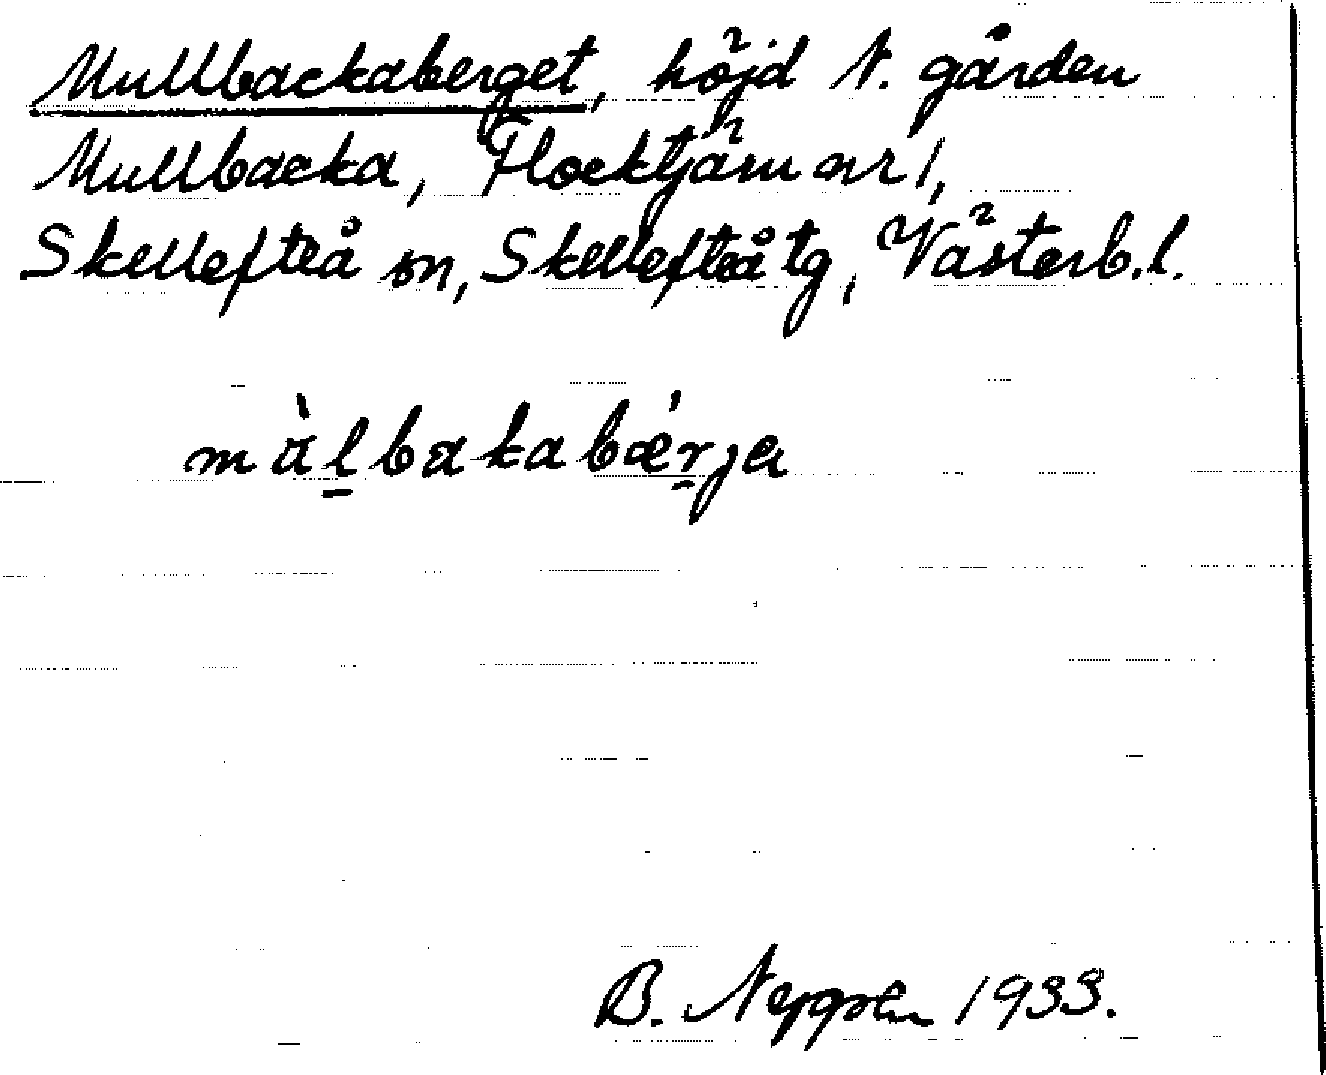 Mullbackaberget, höjd N. gården
Mullbacka, Flocktjärn nr 1,
Skellefteå sn, Skellefteå tg, Västerb. l.
mälbakabærja
B. 1933.